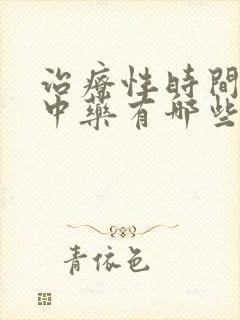 治療性時間
中藥有哪些
青依色